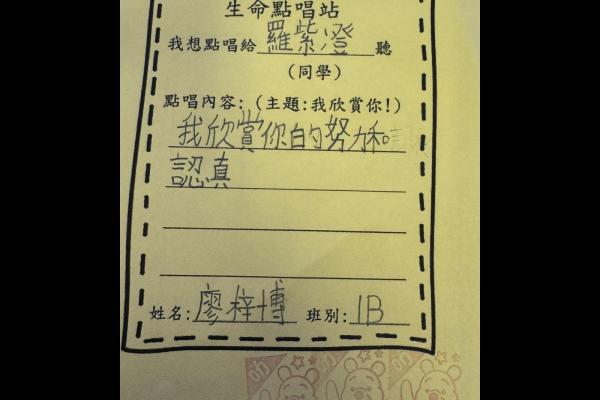 生命點唱站
我想點唱給羅紫澄聽
(同學)
點唱內容:(主題:我欣賞你!)
我欣賞你的努力和
認真
姓名:廖梓博 班別:1B